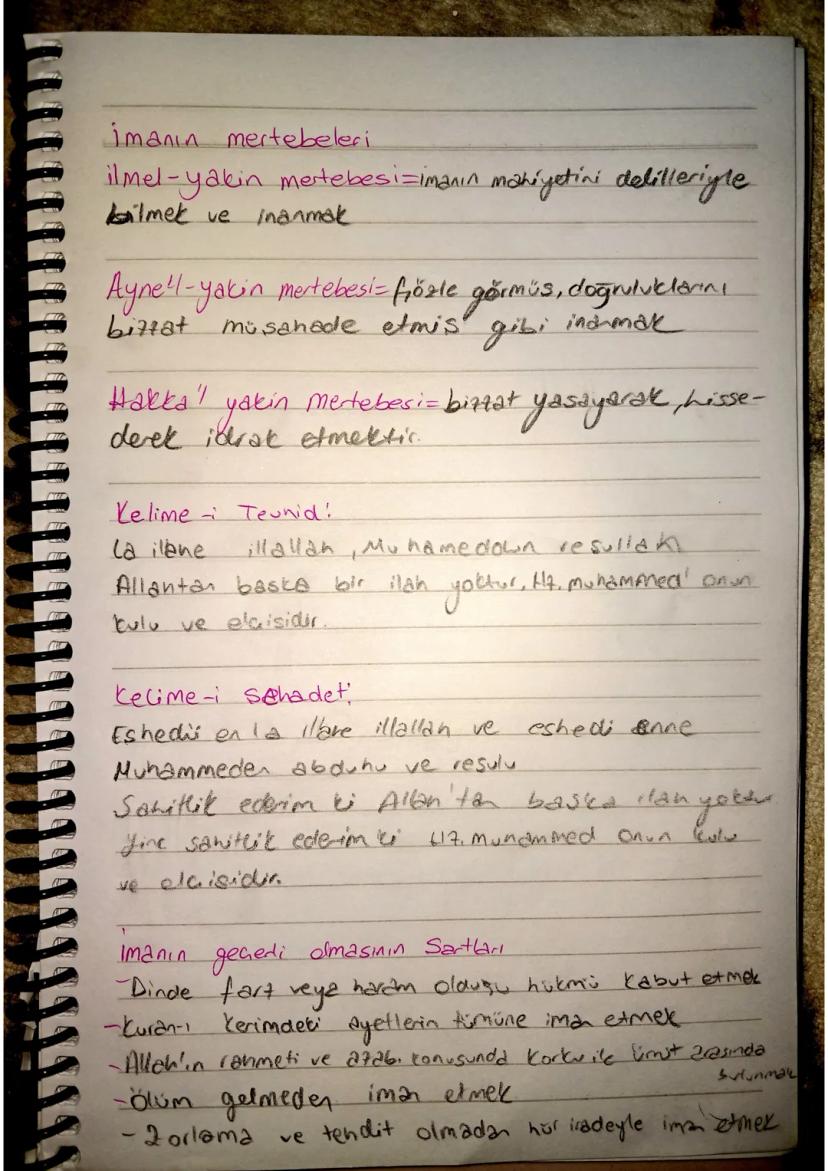 imanın mertebeleri
ilmel-yakin mertebesi=imanın mahiyetini delilleriyle
bilmek ve inanmak
Ayne'l-yakin mertebesi=Gözle görmüs, doğruluklarını
bizzat müsahede etmis gibi inanmak
Hakka'l yakin mertebesi=bizzat yasayarak, hisse-
derek idrak etmektir.
Kelime-i Tevhid:
La ilahe illallah, Muhameddun resullah
Allahtan baska bir ilah yoktur. Hz. muhammed' onun
kulu ve elcisidir.
Kelime-i Sehadet:
Eshedü en la ilahe illallah ve eshedi enne
Muhammeden abduhu ve resulu
Sahitlik ederim ki Allah'tan baska ilah yoktur
Yine sahitlik ederim ki Hz. muhammed onun kulu
ve elcisidir.
imanın gecerli olmasının Sartları
-Dinde farz veya haram olduğu hükmü kabul etmek
-Kuran-ı Kerimdeki ayetlerin tümüne iman etmek
-Allah'ın rahmeti ve azabı konusunda korku ile ümit arasında
bulunmak
-Ölüm gelmeden iman etmek
-Zorlama ve tehdit olmadan hür iradeyle iman etmek